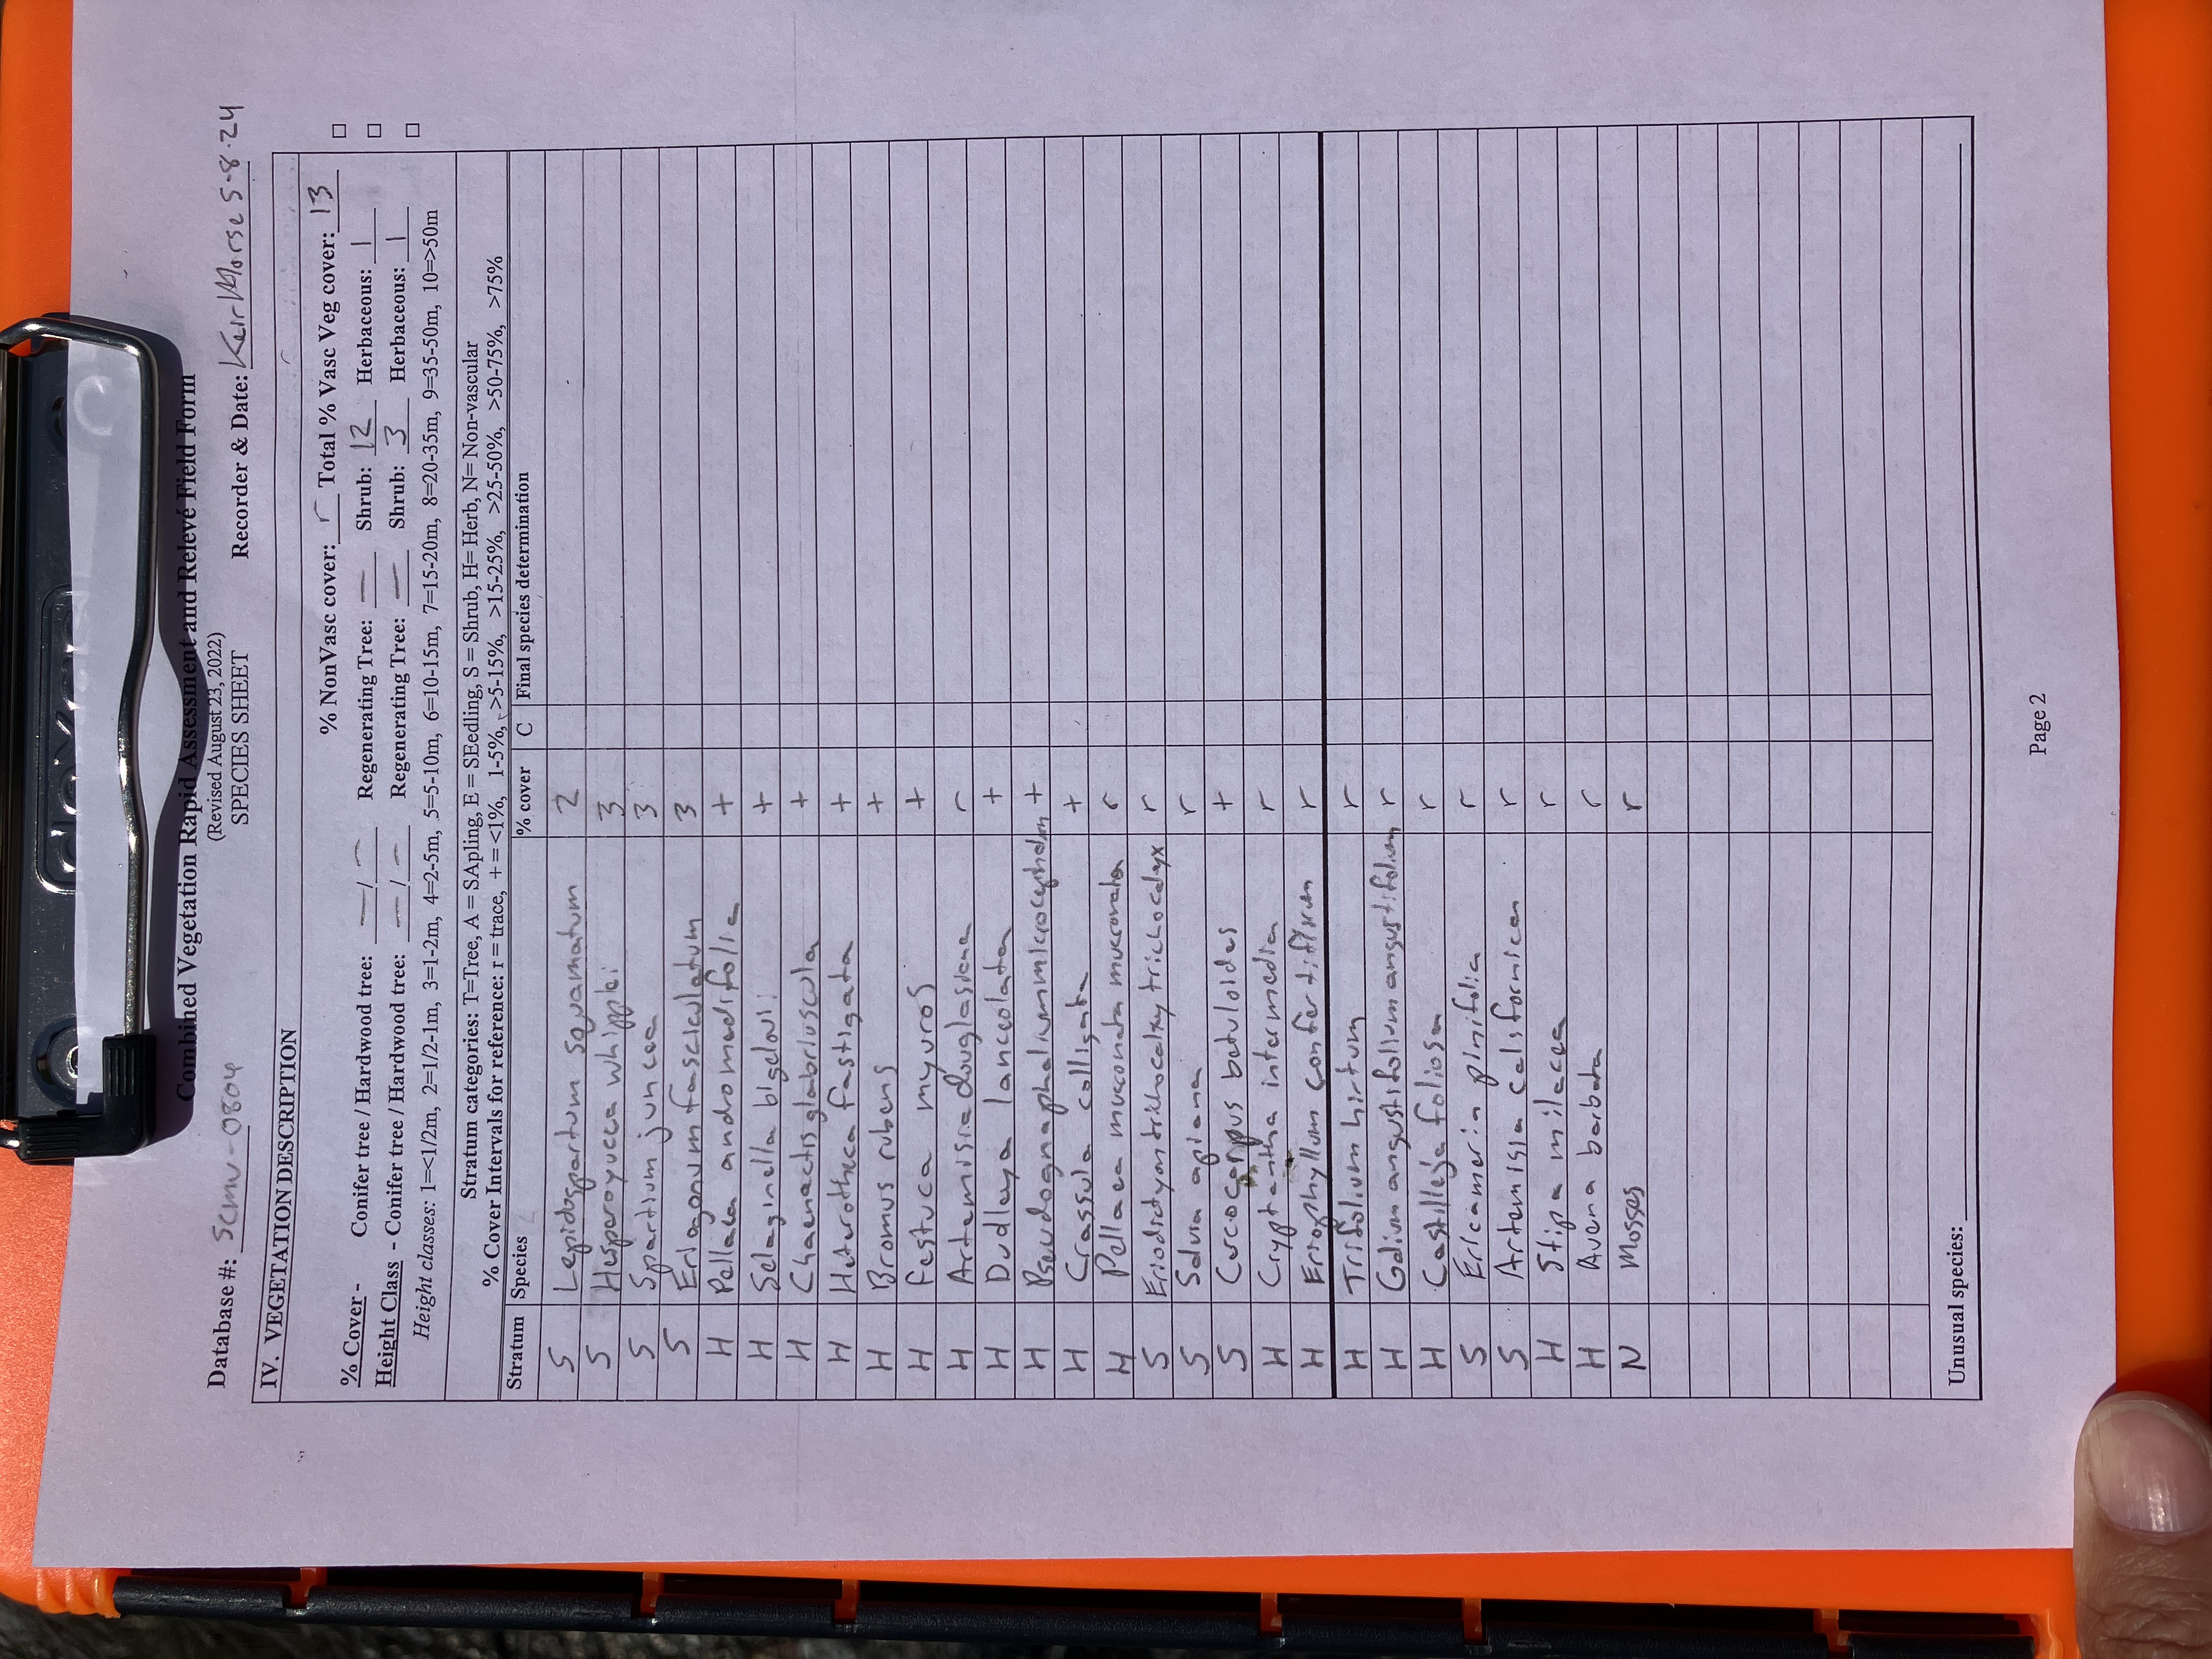 Combined Vegetation Rapid Assessment and Relevé Field Form
(Revised August 23, 2022)
SPECIES SHEET
Database #: SCMU-0804 Recorder & Date: Keir Morse 5-8-24
IV. VEGETATION DESCRIPTION
% NonVasc cover: r Total % Vasc Veg cover: 13
% Cover - Conifer tree / Hardwood tree: — / — Regenerating Tree: — Shrub: 12 Herbaceous: 1
Height Class - Conifer tree / Hardwood tree: — / — Regenerating Tree: — Shrub: 3 Herbaceous: 1
Height classes: 1=<1/2m, 2=1/2-1m, 3=1-2m, 4=2-5m, 5=5-10m, 6=10-15m, 7=15-20m, 8=20-35m, 9=35-50m, 10=>50m
Stratum categories: T=Tree, A = SApling, E = SEedling, S = Shrub, H= Herb, N= Non-vascular
% Cover Intervals for reference: r = trace, + = <1%, 1-5%, >5-15%, >15-25%, >25-50%, >50-75%, >75%
Stratum Species % cover C Final species determination
S Lepidospartum squamatum 2
S Hesperoyucca whipplei 3
S Spartium junceea 3
S Eriogonum fasciculatum 3
H Pellaea andromedifolia +
H Selaginella bigelovii +
H Chaenactis glabriuscula +
H Heterotheca fastigiata +
H Bromus rubens +
H Festuca myuros +
H Artemisia douglasiana r
H Dudleya lanceolata +
H Pseudognaphalium microcephalum +
H Crassula colligata +
H Pellaea mucronata mucronata r
S Eriodictyon trichocalyx trichocalyx r
S Salvia apiana r
S Cercocarpus betuloides +
H Cryptantha intermedia r
H Eriophyllum confertiflorum r
H Trifolium hirtum r
H Galium angustifolium angustifolium r
H Castilleja foliosa r
S Ericameria pinifolia r
S Artemisia californica r
H Stipa milacea r
H Avena barbata r
N Mosses r
Unusual species:
Page 2